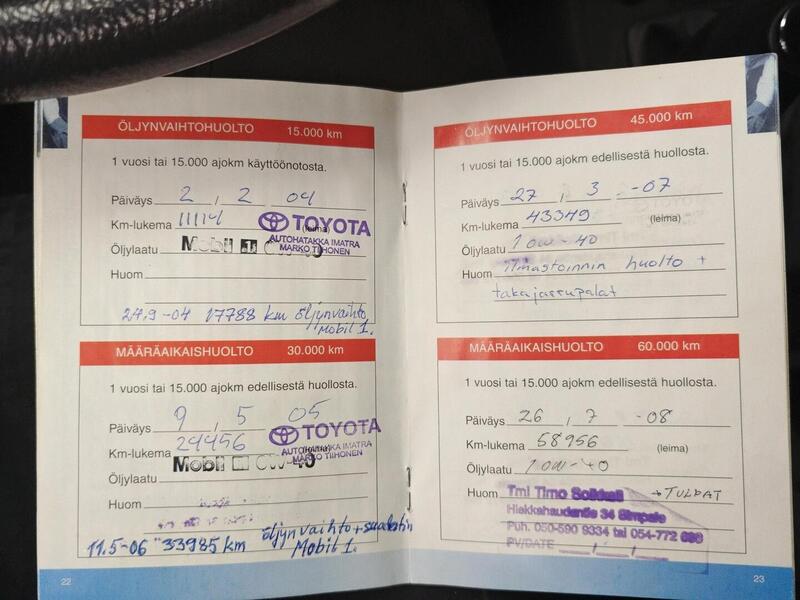 ÖLJYNVAIHTOHUOLTO 15.000 km
1 vuosi tai 15.000 ajokm käyttöönotosta.
Päiväys 2 / 2 04
Km-lukema 11114 (leima)
TOYOTA
AUTOHATAKKA IMATRA
MARKO TIIHONEN
Öljylaatu Mobil 1 0W-40
Huom
24.9-04 17788 km öljynvaihto,
Mobil 1.
MÄÄRÄAIKAISHUOLTO 30.000 km
1 vuosi tai 15.000 ajokm edellisestä huollosta.
Päiväys 9 / 5 05
Km-lukema 24456
TOYOTA
AUTOHATAKKA IMATRA
MARKO TIIHONEN
Öljylaatu Mobil 1 0W-40
Huom
11.5-06 33985 km öljynvaihto + suodatin
Mobil 1.
22
ÖLJYNVAIHTOHUOLTO 45.000 km
1 vuosi tai 15.000 ajokm edellisestä huollosta.
Päiväys 27 / 3 -07
Km-lukema 43349 (leima)
Öljylaatu 10W-40
Huom Ilmastoinnin huolto +
takajarrupalat
MÄÄRÄAIKAISHUOLTO 60.000 km
1 vuosi tai 15.000 ajokm edellisestä huollosta.
Päiväys 26 / 7 -08
Km-lukema 58956 (leima)
Öljylaatu 10W-40
Huom Tmi Timo Soikkeli → TULPAT
Hiekkahaudantie 34 Simpele
Puh. 050-590 9334 tai 054-772
PV/DATE / /
23